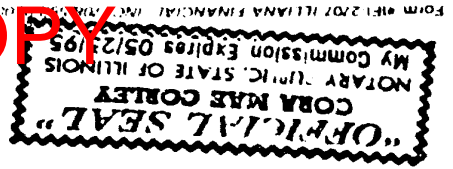 OPY
"OFFICIAL SEAL"
CORA MAE CORLEY
NOTARY PUBLIC, STATE OF ILLINOIS
My Commission Expires 05/23/95
Form #IFI 2707 ILLIANA FINANCIAL, INC.